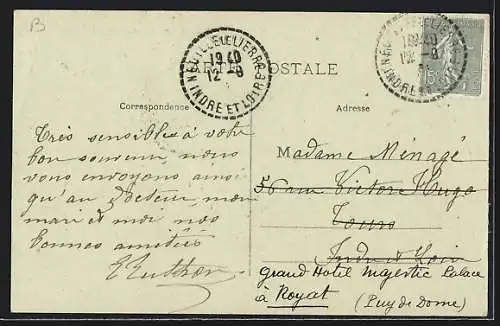 B
CARTE POSTALE
NEUILLÉ LE LIERRE
19 40
12 - 9
INDRE ET LOIRE
19 40
12 - 9
INDRE ET LOIRE
15
Correspondence
Adresse
Très sensibles à votre
bon souvenir nous
vous envoyons ainsi
qu'au Docteur mon
mari et moi nos
bonnes amitiés
Madame Ménagé
56 rue Victor Hugo
Tours
Indre et Loire
Grand Hotel Majestic Palace
à Royat (Puy de Dome)